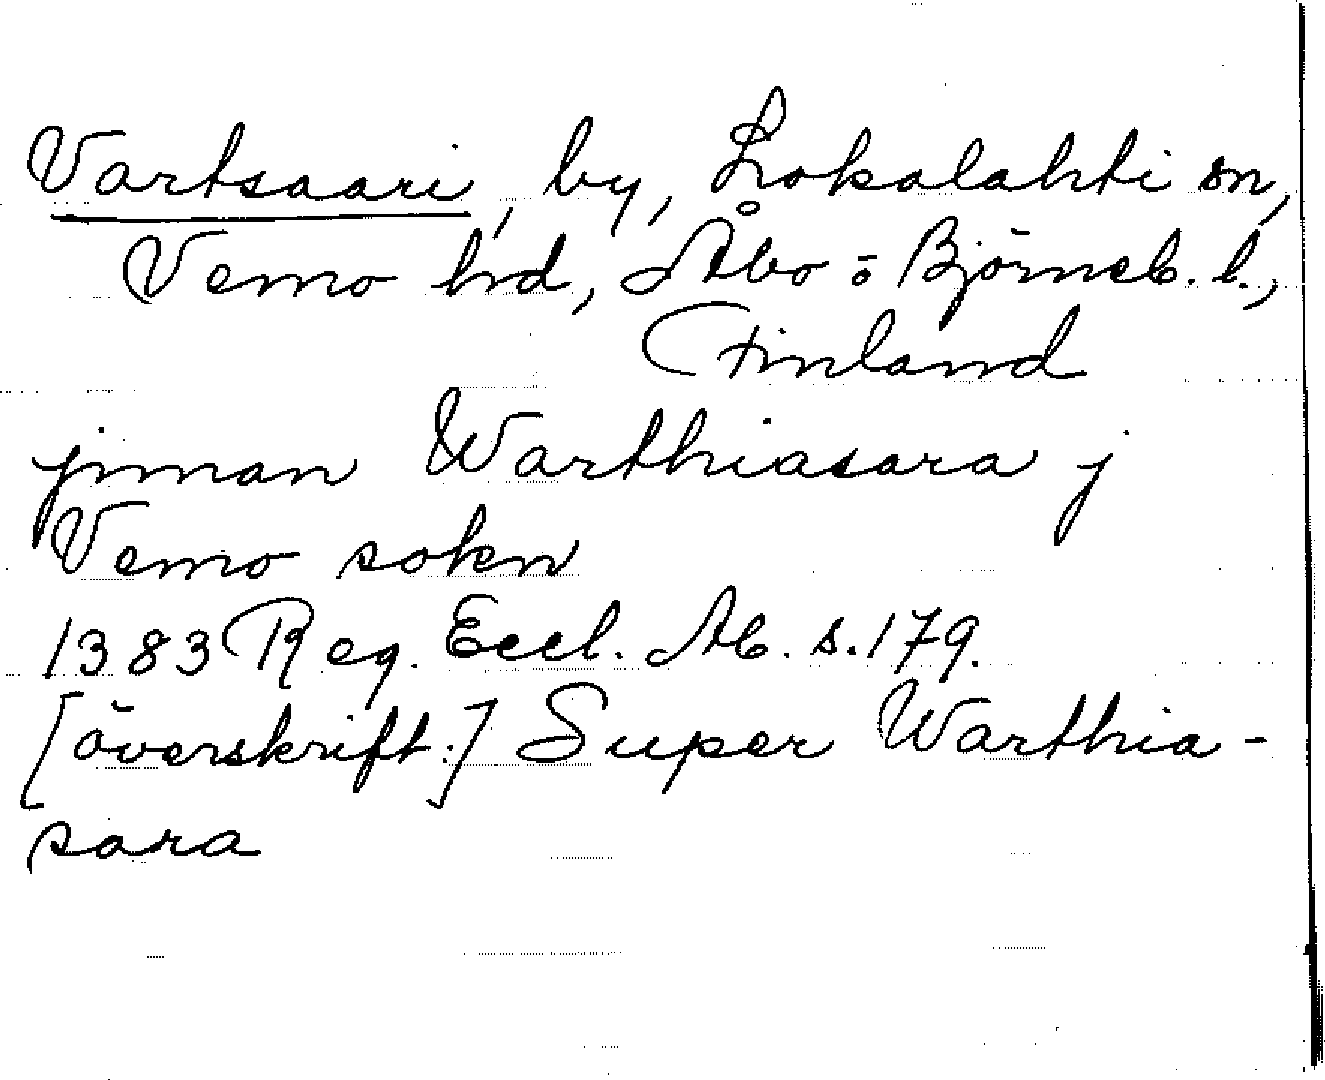 Vartsaari, by, Lokalahti sn,
Vemo hd, Åbo o Björneb. l.,
Finland
jnnan Warthiasara j
Vemo sokn
1383 Reg. Eccl. Ab. s. 179.
[överskrift:] Super Warthia-
sara